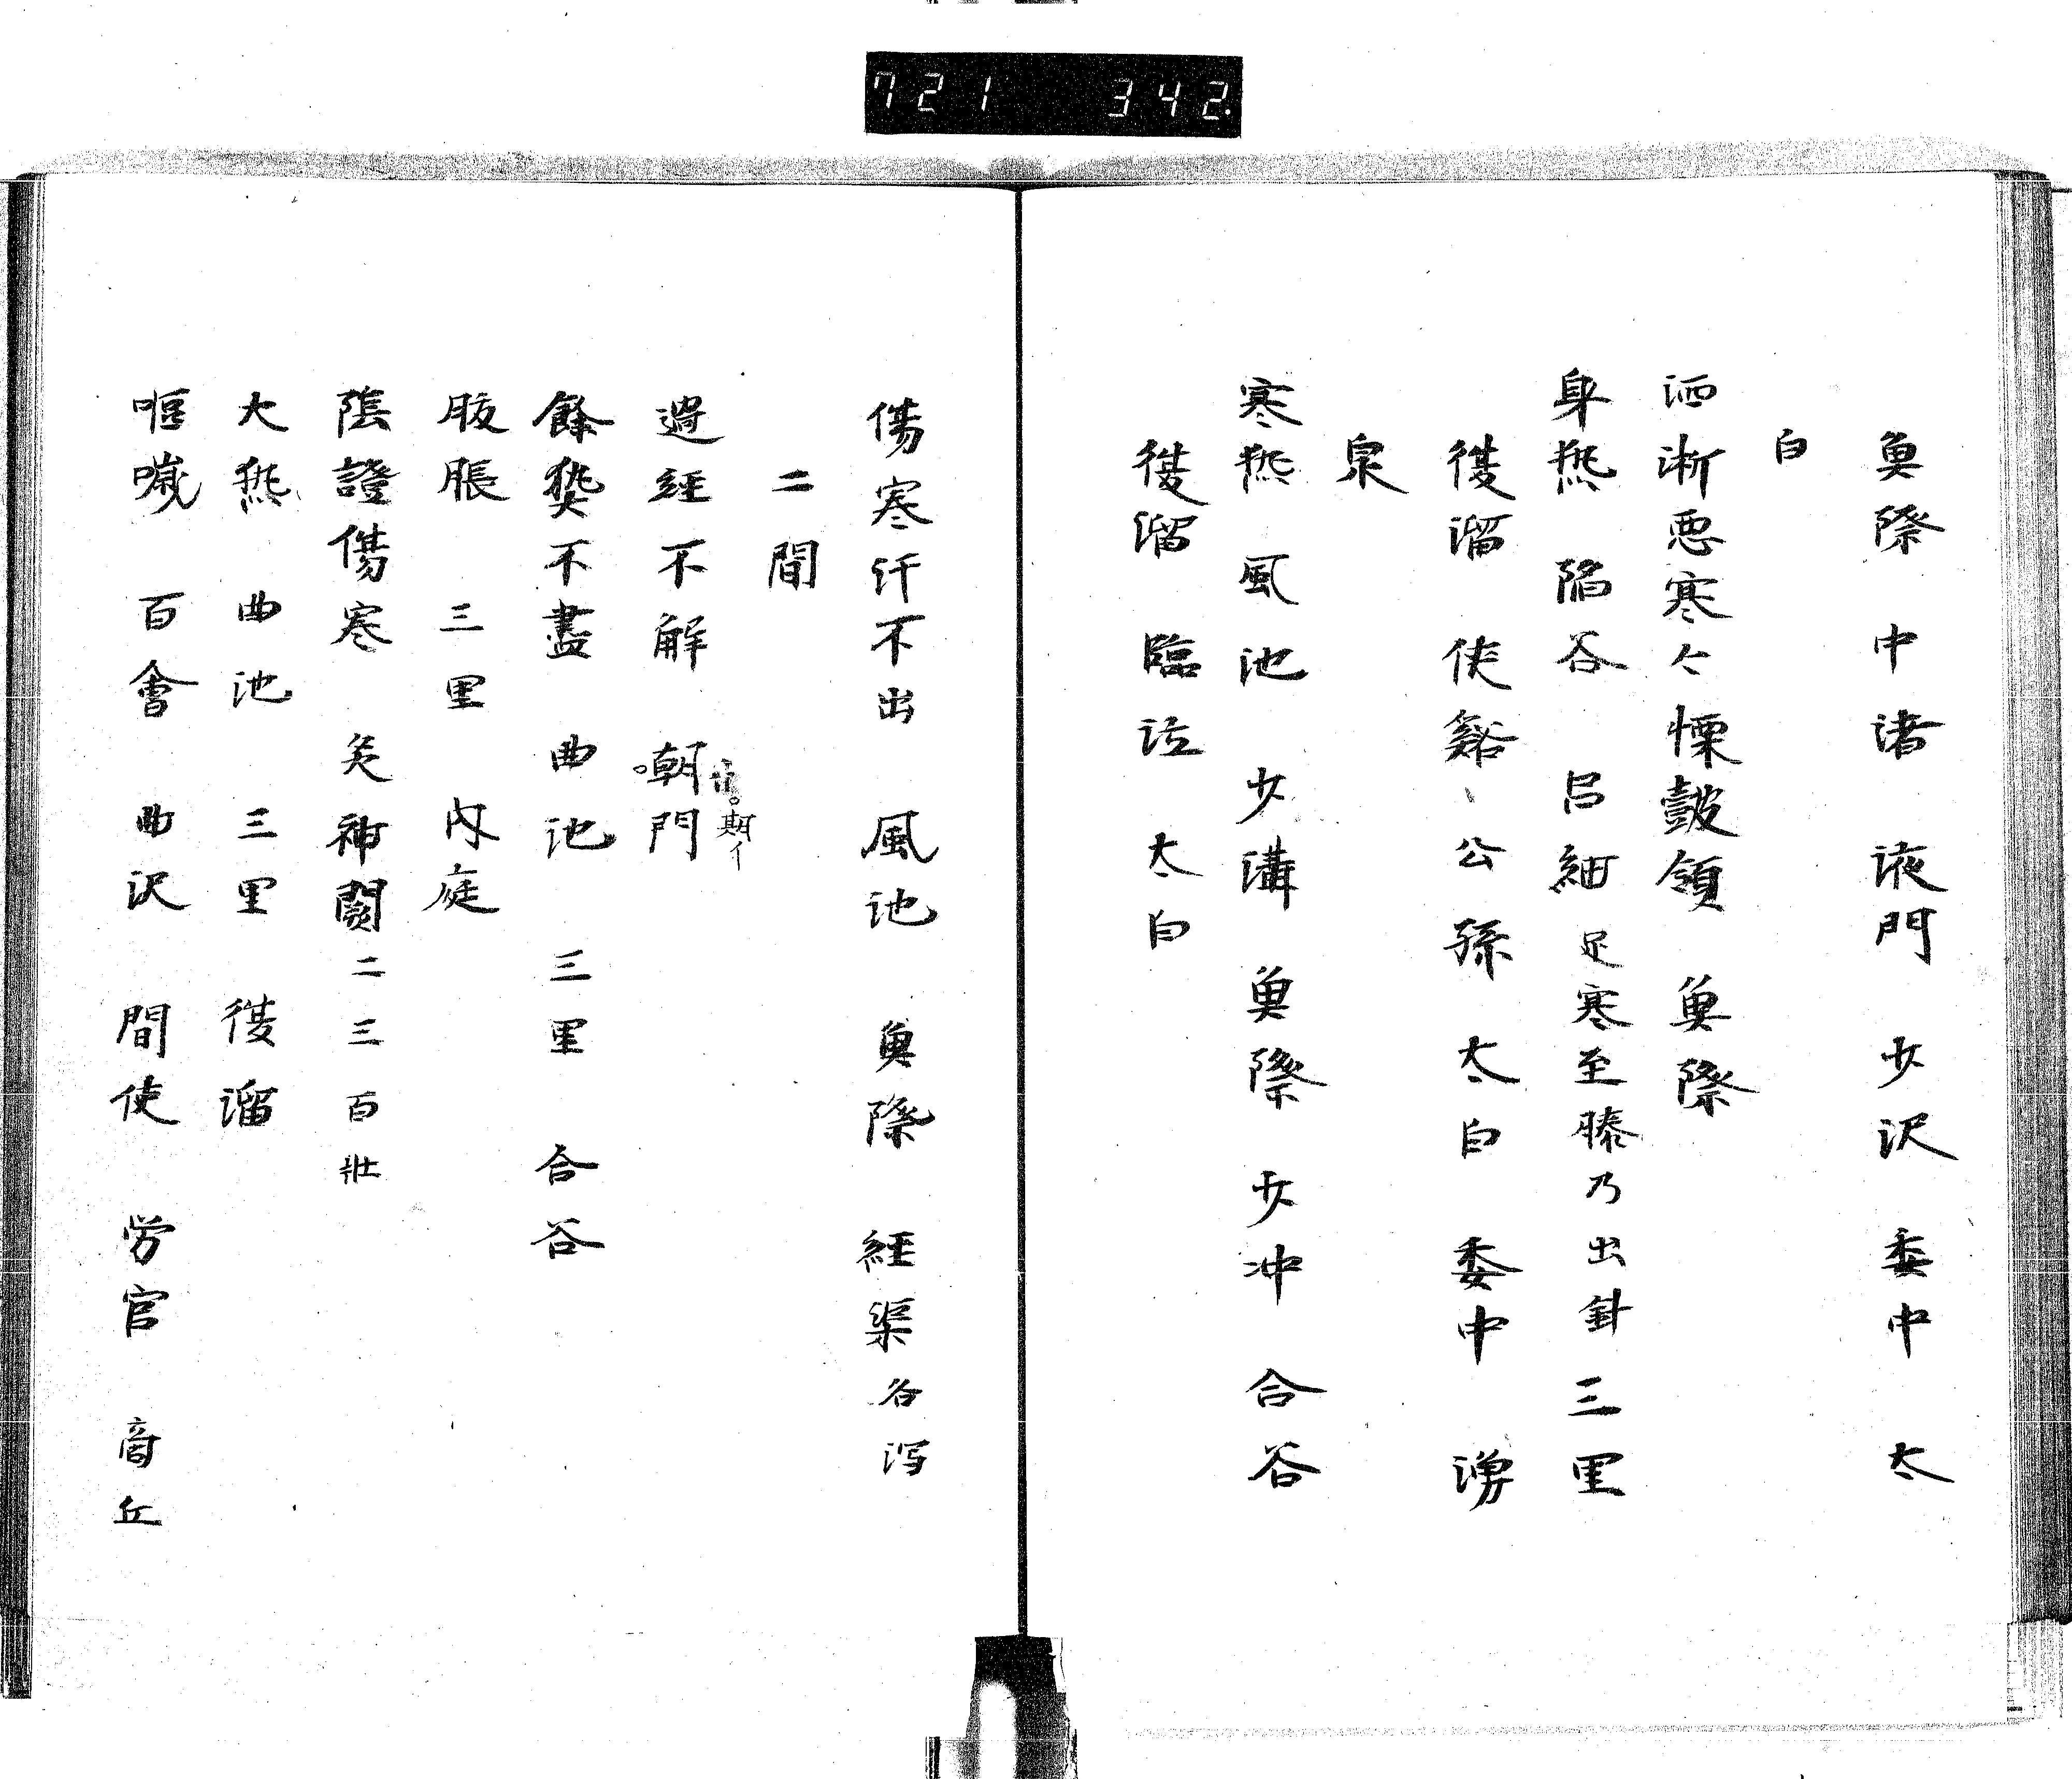 721 342.
魚際 中渚 液門 少沢 委中 太
白
洒淅悪寒々慄鼓領 魚際
身熱 陥谷 呂細 足寒至膝乃出針 三里
復溜 侠谿 公孫 太白 委中 湧
泉
寒熱 風池 少溝 魚際 少冲 合谷
復溜 臨泣 太白
傷寒汗不出 風池 魚際 経渠 各泻
二間
過経不解 朝門
期イ
餘𤍠不盡 曲池 三里 合谷
腹脹 三里 内庭
陰證傷寒 灸神闕 二三百壮
大熱 曲池 三里 復溜
嘔噦 百會 曲沢 間使 労宮 商丘